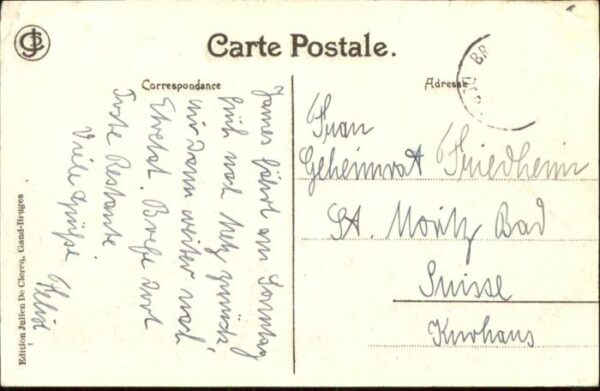 Carte Postale.
Correspondance
Adresse
James fährt am Sonntag
früh nach Metz zurück
wir dann weiter nach
Etretat. Briefe dort
Poste Restante.
Viele Grüße
Frau
Geheimrat Friedheim
St. Moritz Bad
Suisse
Kurhaus
Edition Julien De Clercq, Gand-Bruges
BR